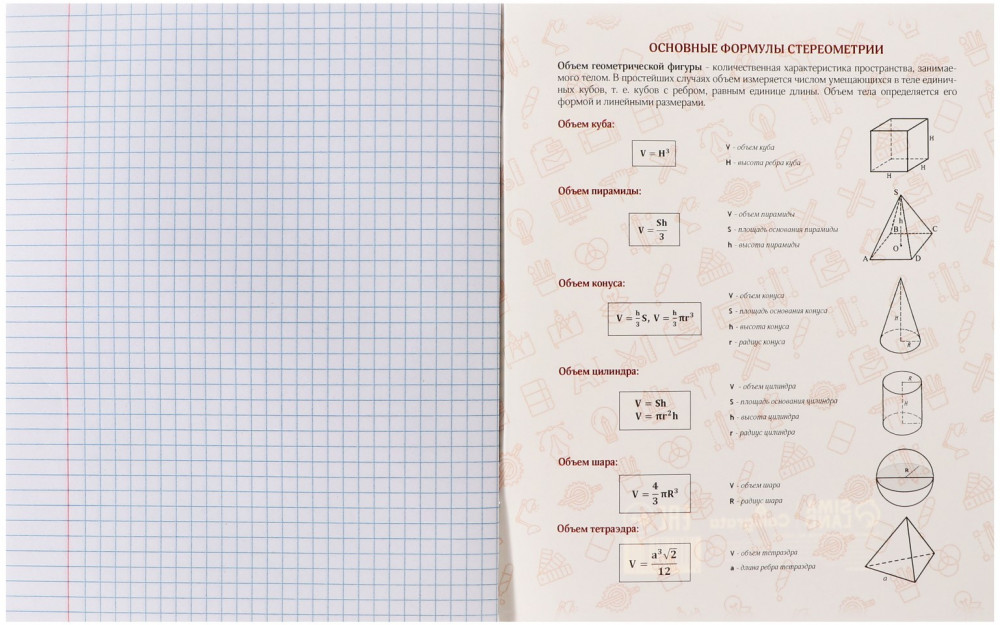 ОСНОВНЫЕ ФОРМУЛЫ СТЕРЕОМЕТРИИ
Объем геометрической фигуры – количественная характеристика пространства, занимае-
мого телом. В простейших случаях объем измеряется числом умещающихся в теле единич-
ных кубов, т. е. кубов с ребром, равным единице длины. Объем тела определяется его
формой и линейными размерами.
Объем куба:
V = H³
V - объем куба
H - высота ребра куба
H
H
H
Объем пирамиды:
V = Sh/3
V - объем пирамиды
S - площадь основания пирамиды
h - высота пирамиды
S
h
B
C
O
A
D
Объем конуса:
V = h/3 S, V = h/3 πr³
V - объем конуса
S - площадь основания конуса
h - высота конуса
r - радиус конуса
R
Объем цилиндра:
V = Sh
V = πr²h
V - объем цилиндра
S - площадь основания цилиндра
h - высота цилиндра
r - радиус цилиндра
R
H
Объем шара:
V = 4/3 πR³
V - объем шара
R - радиус шара
R
Объем тетраэдра:
V = a³√2/12
V - объем тетраэдра
a - длина ребра тетраэдра
a